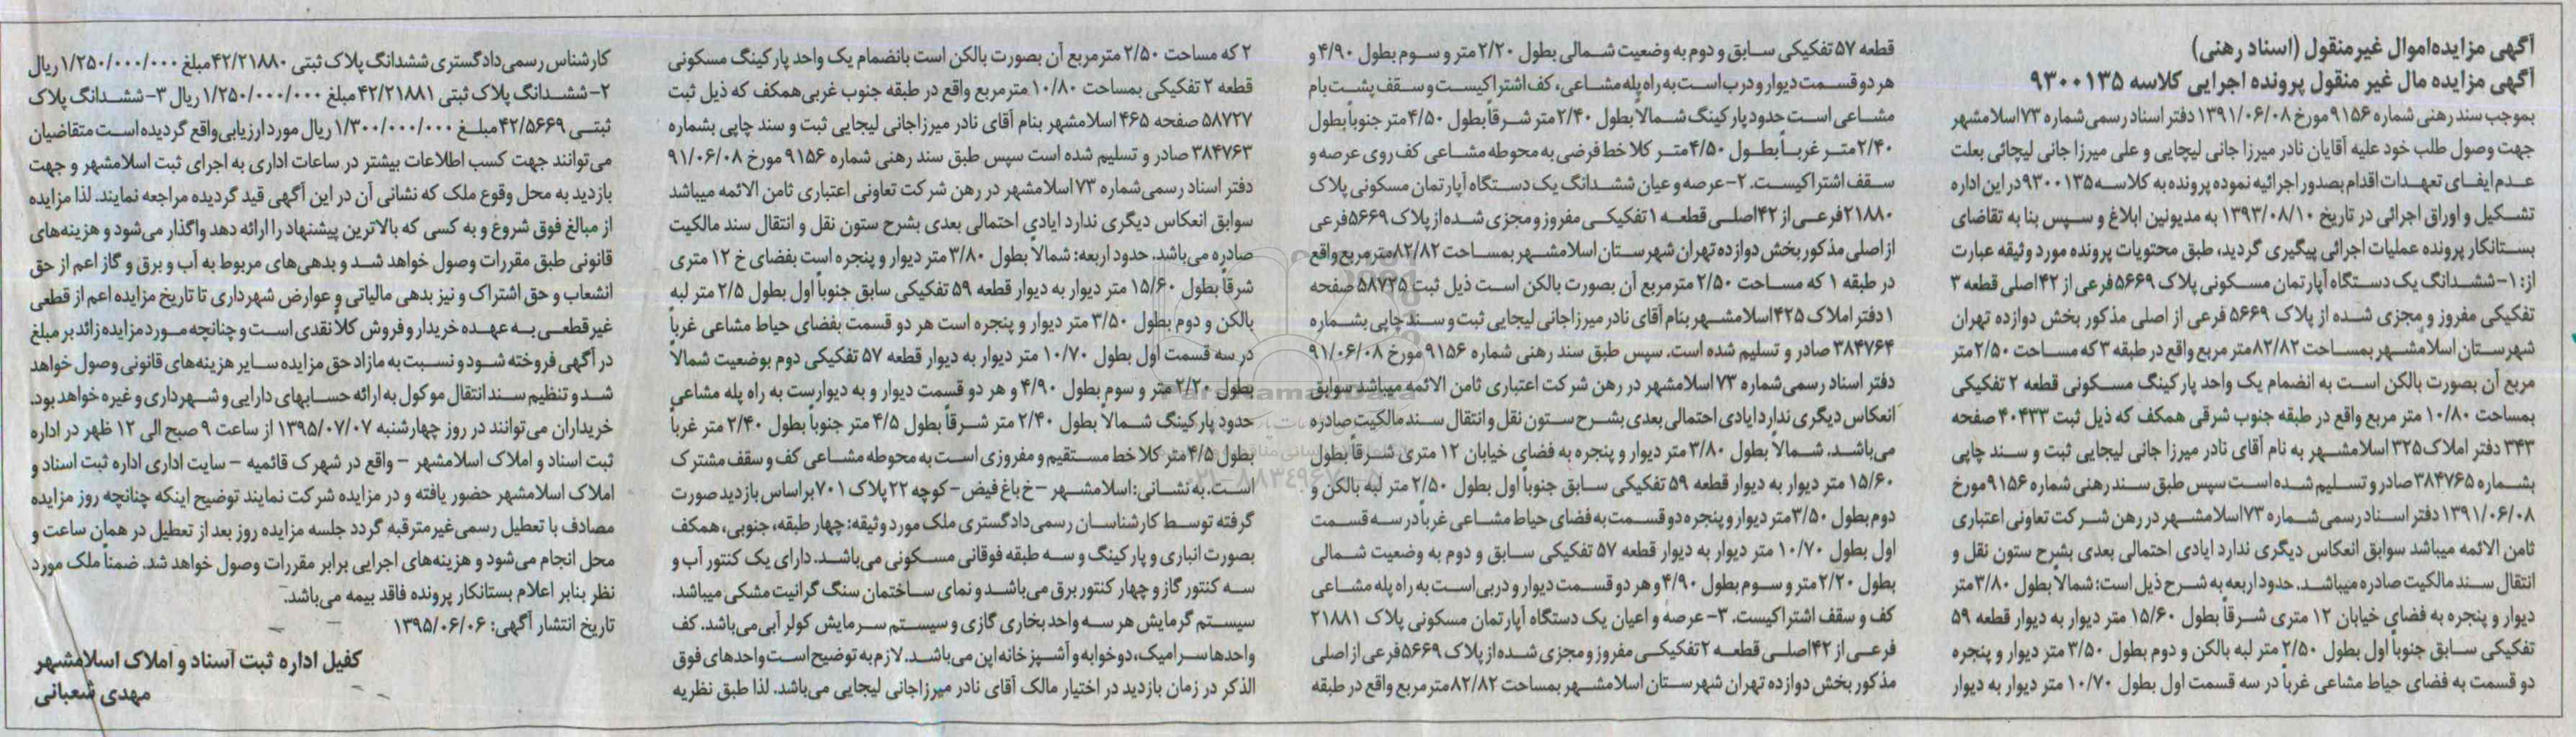 آگهی مزایده‌اموال غیرمنقول (اسناد رهنی)
آگهی مزایده مال غیر منقول پرونده اجرایی کلاسه ۹۳۰۰۱۳۵
بموجب سند رهنی شماره ۹۱۵۶مورخ ۱۳۹۱/۰۶/۰۸ دفتر اسناد رسمی‌شماره ۷۳اسلامشهر
جهت وصول طلب خود علیه آقایان نادر میرزا جانی لیجایی و علی میرزا جانی لیجائی بعلت
عدم‌ایفای تعهدات اقدام بصدور اجرائیه نموده پرونده به کلاسه ۹۳۰۰۱۳۵در این اداره
تشکیل و اوراق اجرائی در تاریخ ۱۳۹۳/۰۸/۱۰ به مدیونین ابلاغ و سپس بنا به تقاضای
بستانکار پرونده عملیات اجرائی پیگیری گردید، طبق محتویات پرونده مورد وثیقه عبارت
از: ۱-ششدانگ یک دستگاه آپارتمان مسکونی پلاک ۵۶۶۹فرعی از ۴۲اصلی قطعه ۳
تفکیکی مفروز و مجزی شده از پلاک ۵۶۶۹ فرعی از اصلی مذکور بخش دوازده تهران
شهرستان اسلامشهر بمساحت ۸۲/۸۲متر مربع واقع در طبقه ۳ که مساحت ۲/۵۰متر
مربع آن بصورت بالکن است به انضمام یک واحد پارکینگ مسکونی قطعه ۲ تفکیکی
بمساحت ۱۰/۸۰ متر مربع واقع در طبقه جنوب شرقی همکف که ذیل ثبت ۴۰۴۳۳ صفحه
۳۴۳ دفتر املاک ۳۲۵اسلامشهر به نام آقای نادر میرزا جانی لیجایی ثبت و سند چاپی
بشماره ۳۸۴۷۶۵صادر و تسلیم شده است سپس طبق سند رهنی شماره ۹۱۵۶مورخ
۱۳۹۱/۰۶/۰۸ دفتر اسناد رسمی شماره ۷۳اسلامشهر در رهن شرکت تعاونی اعتباری
ثامن الائمه میباشد سوابق انعکاس دیگری ندارد ایادی احتمالی بعدی بشرح ستون نقل و
انتقال سند مالکیت صادره میباشد. حدود اربعه به شرح ذیل است: شمالاً بطول ۳/۸۰متر
دیوار و پنجره به فضای خیابان ۱۲ متری شرقاً بطول ۱۵/۶۰ متر دیوار به دیوار قطعه ۵۹
تفکیکی سابق جنوباً اول بطول ۲/۵۰ متر لبه بالکن و دوم بطول ۳/۵۰ متر دیوار و پنجره
دو قسمت به فضای حیاط مشاعی غرباً در سه قسمت اول بطول ۱۰/۷۰ متر دیوار به دیوار
قطعه ۵۷ تفکیکی سابق و دوم به وضعیت شمالی بطول ۲/۲۰ متر و سوم بطول ۴/۹۰ و
هر دو قسمت دیوار و درب است به راه پله مشاعی، کف اشتراکیست و سقف پشت بام
مشاعی است حدود پارکینگ شمالاً بطول ۲/۴۰ متر شرقاً بطول ۴/۵۰متر جنوباً بطول
۲/۴۰متر غرباً بطول ۴/۵۰متر کلا خط فرضی به محوطه مشاعی کف روی عرصه و
سقف اشتراکیست. ۲-عرصه و عیان ششدانگ یک دستگاه آپارتمان مسکونی پلاک
۲۱۸۸۰فرعی از ۴۲اصلی قطعه ۱ تفکیکی مفروز و مجزی شده از پلاک ۵۶۶۹فرعی
از اصلی مذکور بخش دوازده تهران شهرستان اسلامشهر بمساحت ۸۲/۸۲مترمربع واقع
در طبقه ۱ که مساحت ۲/۵۰ مترمربع آن بصورت بالکن است ذیل ثبت ۵۸۷۲۵ صفحه
۱ دفتر املاک ۴۲۵اسلامشهر بنام آقای نادر میرزاجانی لیجایی ثبت و سند چاپی بشماره
۳۸۴۷۶۴ صادر و تسلیم شده است. سپس طبق سند رهنی شماره ۹۱۵۶ مورخ ۹۱/۰۶/۰۸
دفتر اسناد رسمی‌شماره ۷۳اسلامشهر در رهن شرکت اعتباری ثامن الائمه میباشد سوابق
انعکاس دیگری ندارد ایادی احتمالی بعدی بشرح ستون نقل و انتقال سند مالکیت صادره
می‌باشد. شمالاً بطول ۳/۸۰ متر دیوار و پنجره به فضای خیابان ۱۲ متری شرقاً بطول
۱۵/۶۰ متر دیوار به دیوار قطعه ۵۹ تفکیکی سابق جنوباً اول بطول ۲/۵۰ متر لبه بالکن و
دوم بطول ۳/۵۰متر دیوار و پنجره دو قسمت به فضای حیاط مشاعی غرباً در سه قسمت
اول بطول ۱۰/۷۰ متر دیوار به دیوار قطعه ۵۷ تفکیکی سابق و دوم به وضعیت شمالی
بطول ۲/۲۰ متر و سوم بطول ۴/۹۰و هر دو قسمت دیوار و دربی است به راه پله مشاعی
کف و سقف اشتراکیست. ۳-عرصه و اعیان یک دستگاه آپارتمان مسکونی پلاک ۲۱۸۸۱
فرعی از ۴۲اصلی قطعه ۲ تفکیکی مفروز و مجزی شده از پلاک ۵۶۶۹فرعی از اصلی
مذکور بخش دوازده تهران شهرستان اسلامشهر بمساحت ۸۲/۸۲مترمربع واقع در طبقه
۲ که مساحت ۲/۵۰ مترمربع آن بصورت بالکن است بانضمام یک واحد پارکینگ مسکونی
قطعه ۲ تفکیکی بمساحت ۱۰/۸۰ مترمربع واقع در طبقه جنوب غربی‌همکف که ذیل ثبت
۵۸۷۲۷ صفحه ۴۶۵ اسلامشهر بنام آقای نادر میرزاجانی لیجایی ثبت و سند چاپی بشماره
۳۸۴۷۶۳ صادر و تسلیم شده است سپس طبق سند رهنی شماره ۹۱۵۶ مورخ ۹۱/۰۶/۰۸
دفتر اسناد رسمی‌شماره ۷۳ اسلامشهر در رهن شرکت تعاونی اعتباری ثامن الائمه میباشد
سوابق انعکاس دیگری ندارد ایادی احتمالی بعدی بشرح ستون نقل و انتقال سند مالکیت
صادره می‌باشد. حدود اربعه: شمالاً بطول ۳/۸۰ متر دیوار و پنجره است بفضای خ ۱۲ متری
شرقاً بطول ۱۵/۶۰ متر دیوار به دیوار قطعه ۵۹ تفکیکی سابق جنوباً اول بطول ۲/۵ متر لبه
بالکن و دوم بطول ۳/۵۰ متر دیوار و پنجره است هر دو قسمت بفضای حیاط مشاعی غرباً
در سه قسمت اول بطول ۱۰/۷۰ متر دیوار به دیوار قطعه ۵۷ تفکیکی دوم بوضعیت شمالاً
بطول ۲/۲۰ متر و سوم بطول ۴/۹۰ و هر دو قسمت دیوار و به دیوارست به راه پله مشاعی
حدود پارکینگ شمالاً بطول ۲/۴۰ متر شرقاً بطول ۴/۵ متر جنوباً بطول ۲/۴۰ متر غرباً
بطول ۴/۵متر کلا خط مستقیم و مفروزی است به محوطه مشاعی کف و سقف مشترک
است. به نشانی: اسلامشهر -خ باغ فیض- کوچه ۲۲ پلاک ۷۰۱ براساس بازدید صورت
گرفته توسط کارشناسان رسمی‌دادگستری ملک مورد وثیقه: چهار طبقه، جنوبی، همکف
بصورت انباری و پارکینگ و سه طبقه فوقانی مسکونی می‌باشد. دارای یک کنتور آب و
سه کنتور گاز و چهار کنتور برق می‌باشد و نمای ساختمان سنگ گرانیت مشکی میباشد.
سیستم گرمایش هر سه واحد بخاری گازی و سیستم سرمایش کولر آبی‌می‌باشد. کف
واحدها سرامیک، دوخوابه و آشپزخانه اپن می‌باشد. لازم به توضیح است واحدهای فوق
الذکر در زمان بازدید در اختیار مالک آقای نادر میرزاجانی لیجایی می‌باشد. لذا طبق نظریه
کارشناس رسمی‌دادگستری ششدانگ پلاک ثبتی ۴۲/۲۱۸۸۰مبلغ ۱/۲۵۰/۰۰۰/۰۰۰ریال
۲-ششدانگ پلاک ثبتی ۴۲/۲۱۸۸۱ مبلغ ۱/۲۵۰/۰۰۰/۰۰۰ ریال ۳-ششدانگ پلاک
ثبتی ۴۲/۵۶۶۹مبلغ ۱/۳۰۰/۰۰۰/۰۰۰ ریال مورد ارزیابی‌واقع گردیده است متقاضیان
می‌توانند جهت کسب اطلاعات بیشتر در ساعات اداری به اجرای ثبت اسلامشهر و جهت
بازدید به محل وقوع ملک که نشانی آن در این آگهی قید گردیده مراجعه نمایند. لذا مزایده
از مبالغ فوق شروع و به کسی که بالاترین پیشنهاد را ارائه دهد واگذار می‌شود و هزینه‌های
قانونی طبق مقررات وصول خواهد شد و بدهی‌های مربوط به آب و برق و گاز اعم از حق
انشعاب و حق اشتراک و نیز بدهی مالیاتی و عوارض شهرداری تا تاریخ مزایده اعم از قطعی
غیرقطعی به عهده خریدار و فروش کلا نقدی است و چنانچه مورد مزایده زائد بر مبلغ
در آگهی فروخته شود و نسبت به مازاد حق مزایده سایر هزینه‌های قانونی وصول خواهد
شد و تنظیم سند انتقال موکول به ارائه حسابهای دارایی و شهرداری و غیره خواهد بود.
خریداران می‌توانند در روز چهارشنبه ۱۳۹۵/۰۷/۰۷ از ساعت ۹ صبح الی ۱۲ ظهر در اداره
ثبت اسناد و املاک اسلامشهر - واقع در شهرک قائمیه - سایت اداری اداره ثبت اسناد و
املاک اسلامشهر حضور یافته و در مزایده شرکت نمایند توضیح اینکه چنانچه روز مزایده
مصادف با تعطیل رسمی‌غیرمترقبه گردد جلسه مزایده روز بعد از تعطیل در همان ساعت و
محل انجام می‌شود و هزینه‌های اجرایی برابر مقررات وصول خواهد شد. ضمناً ملک مورد
نظر بنابر اعلام بستانکار پرونده فاقد بیمه می‌باشد.
تاریخ انتشار آگهی: ۱۳۹۵/۰۶/۰۶
کفیل اداره ثبت اسناد و املاک اسلامشهر
مهدی شعبانی